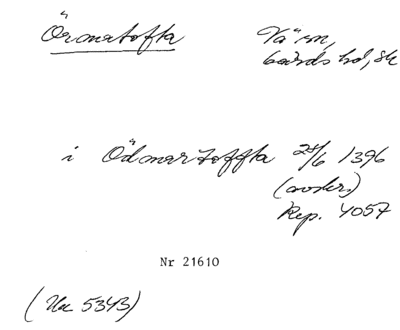 Örmatofta Vä sn,
Gärds hd, Sk
i Ödmartoffta 25/6 1396
(avskr.)
Rep. 4057
Nr 21610
(Un 5343)